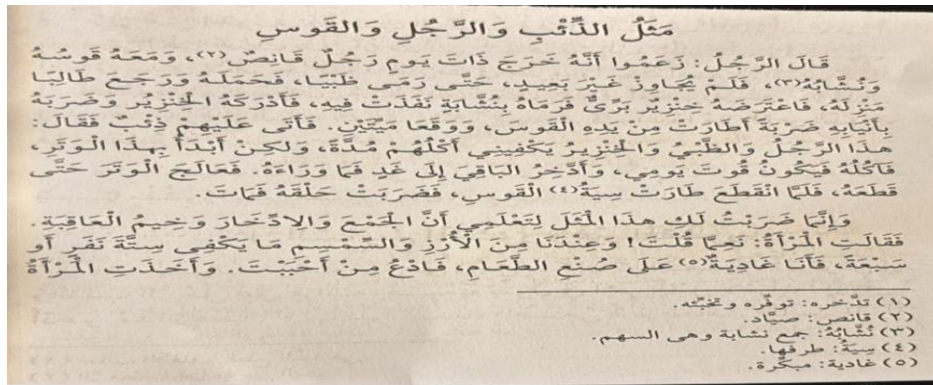 مَثَلُ الذِّئْبِ وَالرَّجُلِ وَالقَوسِ
قَالَ الرَّجُلُ: زَعَمُوا أَنَّهُ خَرَجَ ذَاتَ يَومٍ رَجُلٌ قَانِصٌ(٢)، وَمَعَهُ قَوسُهُ
وَنُشَّابُهُ(٣)، فَلَمْ يُجَاوِزْ غَيْرَ بَعِيدٍ، حَتَّى رَمَى ظَبْيًا، فَحَمَلَهُ وَرَجَعَ طَالِبًا
مَنْزِلَهُ، فَاعْتَرَضَهُ خِنْزِيرٌ بَرِّيٌّ فَرَمَاهُ بِنُشَّابَةٍ نَفَذَتْ فِيهِ، فَأَدْرَكَهُ الْخِنْزِيرُ وَضَرَبَهُ
بِأَنْيَابِهِ ضَرْبَةً أَطَارَتْ مِنْ يَدِهِ الْقَوسَ، وَوَقَعَا مَيِّتَيْنِ. فَأَتَى عَلَيْهِمْ ذِئْبٌ فَقَالَ:
هذَا الرَّجُلُ وَالظَّبْيُ وَالْخِنْزِيرُ يَكْفِينِي أَكْلُهُمْ مُدَّةً، وَلكِنْ أَبْدَأُ بِهذَا الْوَتَرِ،
فَآكُلُهُ فَيَكُونُ قُوتَ يَومِي، وَأَدَّخِرُ البَاقِيَ إِلَى غَدٍ فَمَا وَرَاءَهُ. فَعَالَجَ الْوَتَرَ حَتَّى
قَطَعَهُ، فَلَمَّا انْقَطَعَ طَارَتْ سِيَةُ(٤) الْقَوسِ، فَضَرَبَتْ حَلْقَهُ فَمَاتَ.
وَإِنَّمَا ضَرَبْتُ لَكِ هذَا الْمَثَلَ لِتَعْلَمِي أَنَّ الْجَمْعَ وَالِادِّخَارَ وَخِيمُ الْعَاقِبَةِ.
فَقَالَتِ الْمَرْأَةُ: نَعِمَّا قُلْتَ! وَعِنْدَنَا مِنَ الْأُرْزِ وَالسِّمْسِمِ مَا يَكْفِي سِتَّةَ نَفَرٍ أَو
سَبْعَةً، فَأَنَا غَادِيَةٌ(٥) عَلَى صُنْعِ الطَّعَامِ، فَادْعُ مِنْ أَحْبَبْتَ. وَأَخَذَتِ الْمَرْأَةُ
(١) تدَّخره: توفّره وتخبّئه.
(٢) قانص: صيَّاد.
(٣) نُشَّابُهُ: جمع نشابة وهى السهم.
(٤) سِيَةُ: طرفها.
(٥) غادية: مبكّرة.